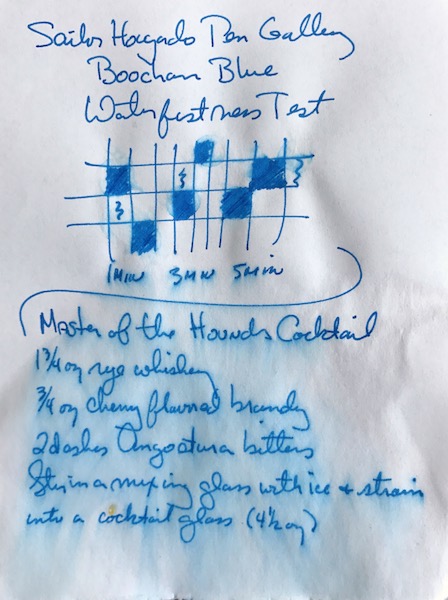 Sailor Hocoro Pen Gallery
Boochan Blue
Waterfastness Test
1 MIN 3 MIN 5 MIN
Master of the Hounds Cocktail
1 3/4 oz rye whiskey
3/4 oz cherry flavored brandy
2 dashes Angostura bitters
Stir in a mixing glass with ice + strain
into a cocktail glass (4 1/2 oz)